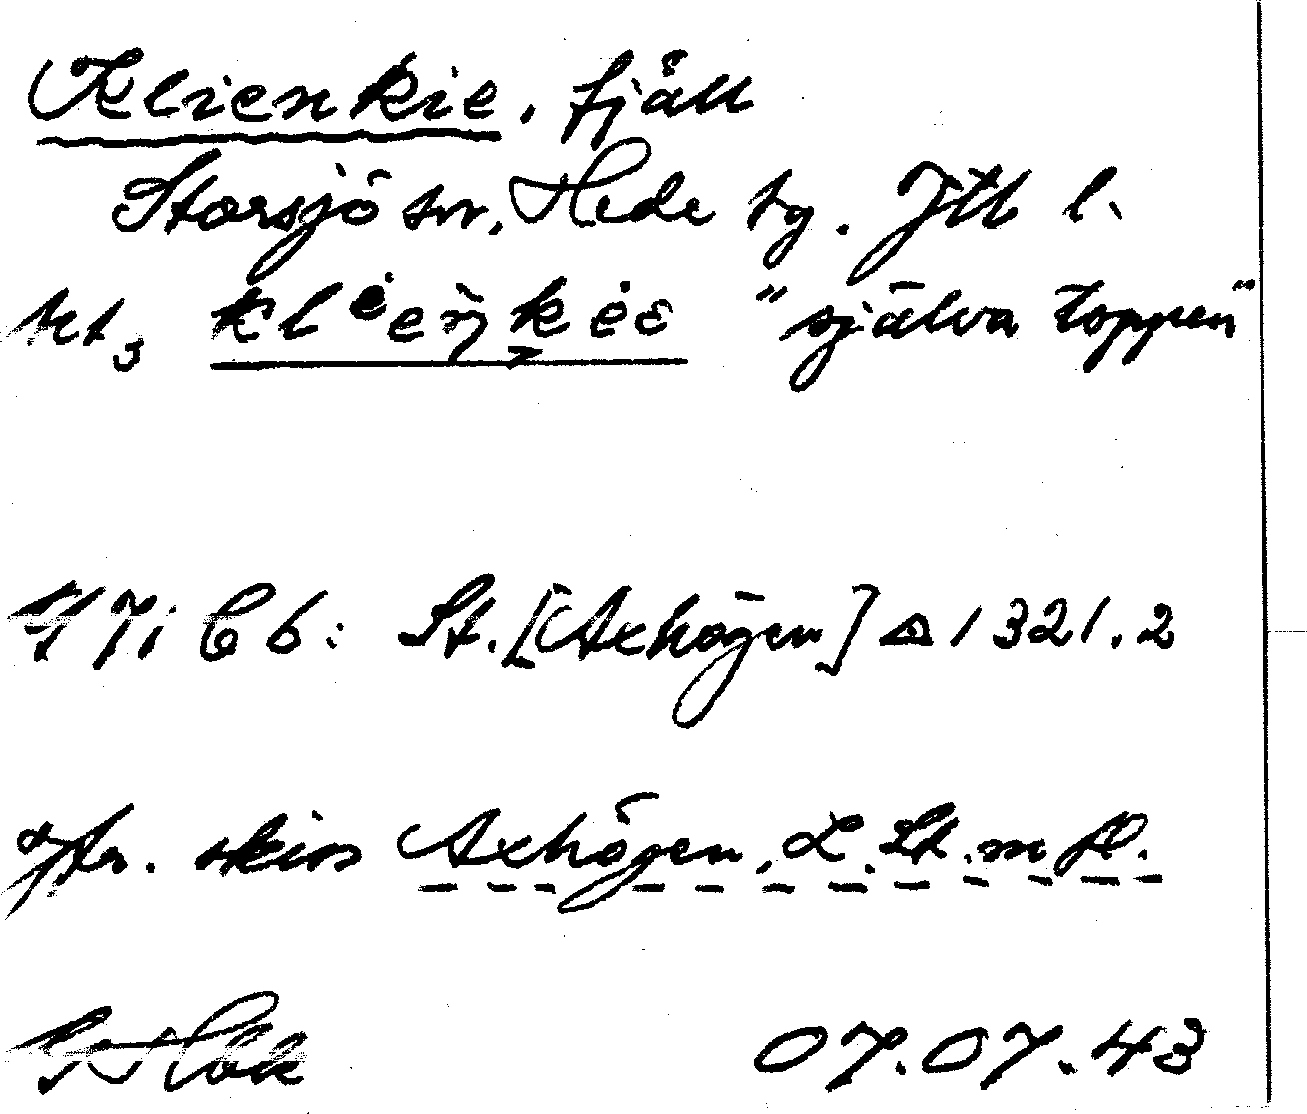 Klienkie, fjäll
Storsjö sn, Hede tg. Jtl l.
"själva toppen"
17i C6: St. [Axhögen] △ 1321.2
jfr. skiss Axhögen, L. St. m fl.
07.07.43